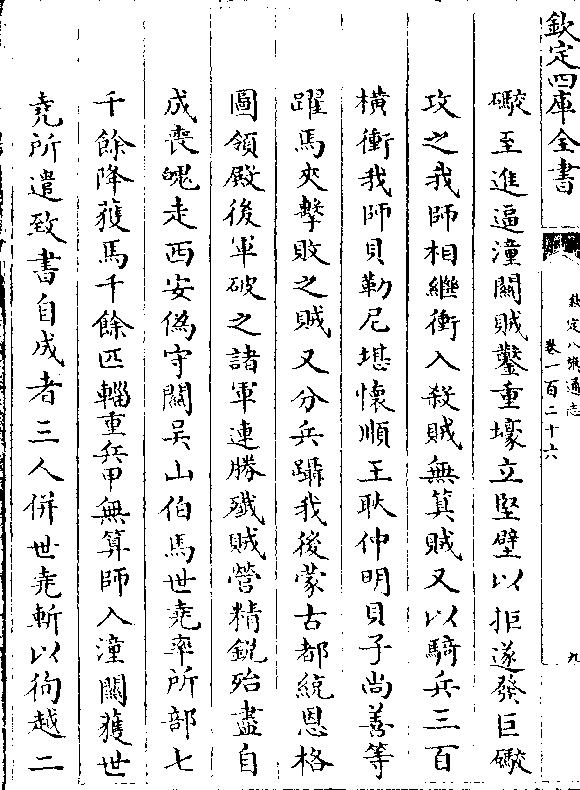 欽定四庫全書
欽定八旗通志
卷一百二十六
九
礮至進逼潼關賊鑿重壕立堅壁以拒遂發巨礮
攻之我師相繼衝入殺賊無算賊又以騎兵三百
橫衝我師貝勒尼堪懷順王耿仲明貝子尚善等
躍馬夾擊敗之賊又分兵躡我後蒙古都統恩格
圖領殿後軍破之諸軍連勝殲賊營精銳殆盡自
成喪魄走西安偽守關吳山伯馬世堯率所部七
千餘降獲馬千餘匹輜重兵甲無算師入潼關獲世
堯所遣致書自成者三人併世堯斬以徇越二